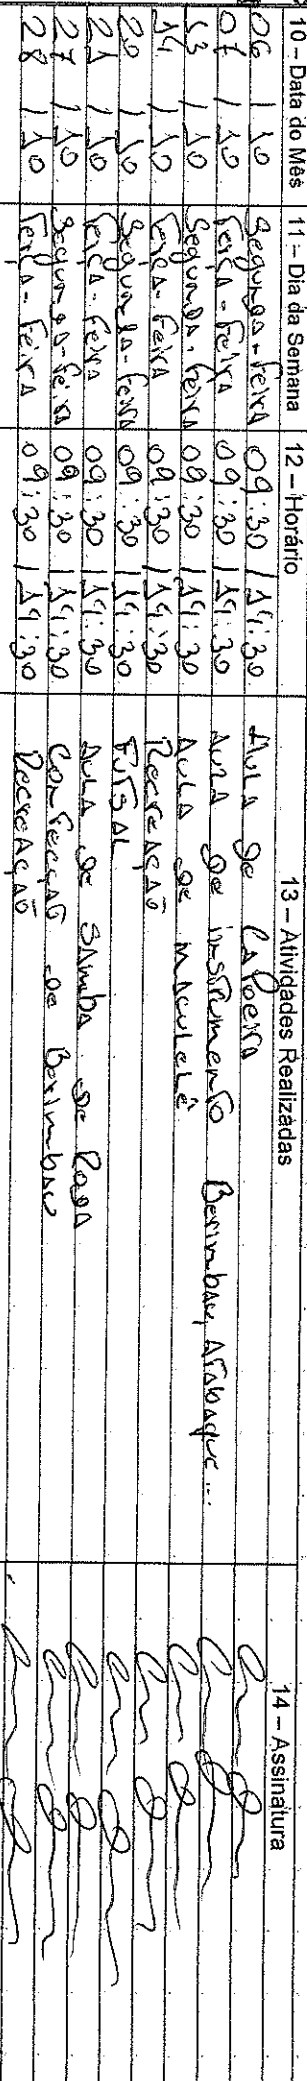 10 – Data do Mês 11 – Dia da Semana 12 – Horário 13 – Atividades Realizadas 14 – Assinatura
06 / 10 Segunda-feira 09:30 / 14:30 Aula de Capoeira
07 / 10 Terça-feira 09:30 / 14:30 Aula de instrumento Berimbau, Atabaque...
13 / 10 Segunda-feira 09:30 / 14:30 Aula de maculelê
14 / 10 Terça-feira 09:30 / 14:30 Recreação
20 / 10 Segunda-feira 09:30 / 14:30 Futsal
21 / 10 Terça-feira 09:30 / 14:30 Aula de Samba de Roda
27 / 10 Segunda-feira 09:30 / 14:30 Confecção de Berimbau
28 / 10 Terça-feira 09:30 / 14:30 Recreação